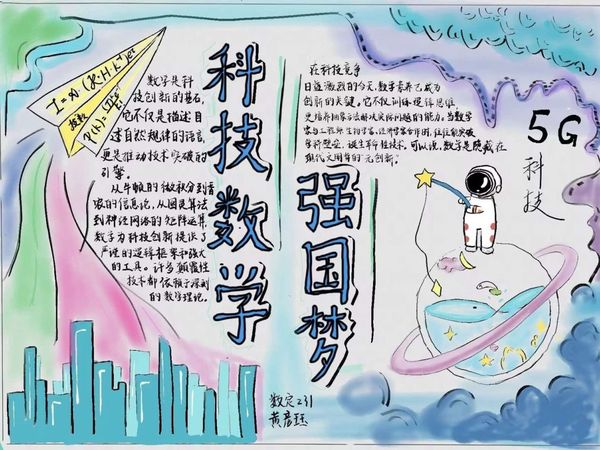 科技数学
强国梦
数学是科
技创新的基石，
它不仅是描述自
述自然规律的语言，
更是推动技术突破的
引擎。
从牛顿的微积分到香
农的信息论，从图灵算法
到神经网络的矩阵运算，
数学为科技创新提供了
严谨的逻辑框架和强大
的工具。许多颠覆性
技术都依赖于深刻
的数学理论。
在科技竞争
日益激烈的今天，数学素养已成为
创新的关键。它不仅训练逻辑思维
更培养用算法解决实际问题的能力。当数学
学科壁垒，诞生革命性技术。可以说，数学是隐藏在
现代文明中的"元创新"。
5G
科技
数定231